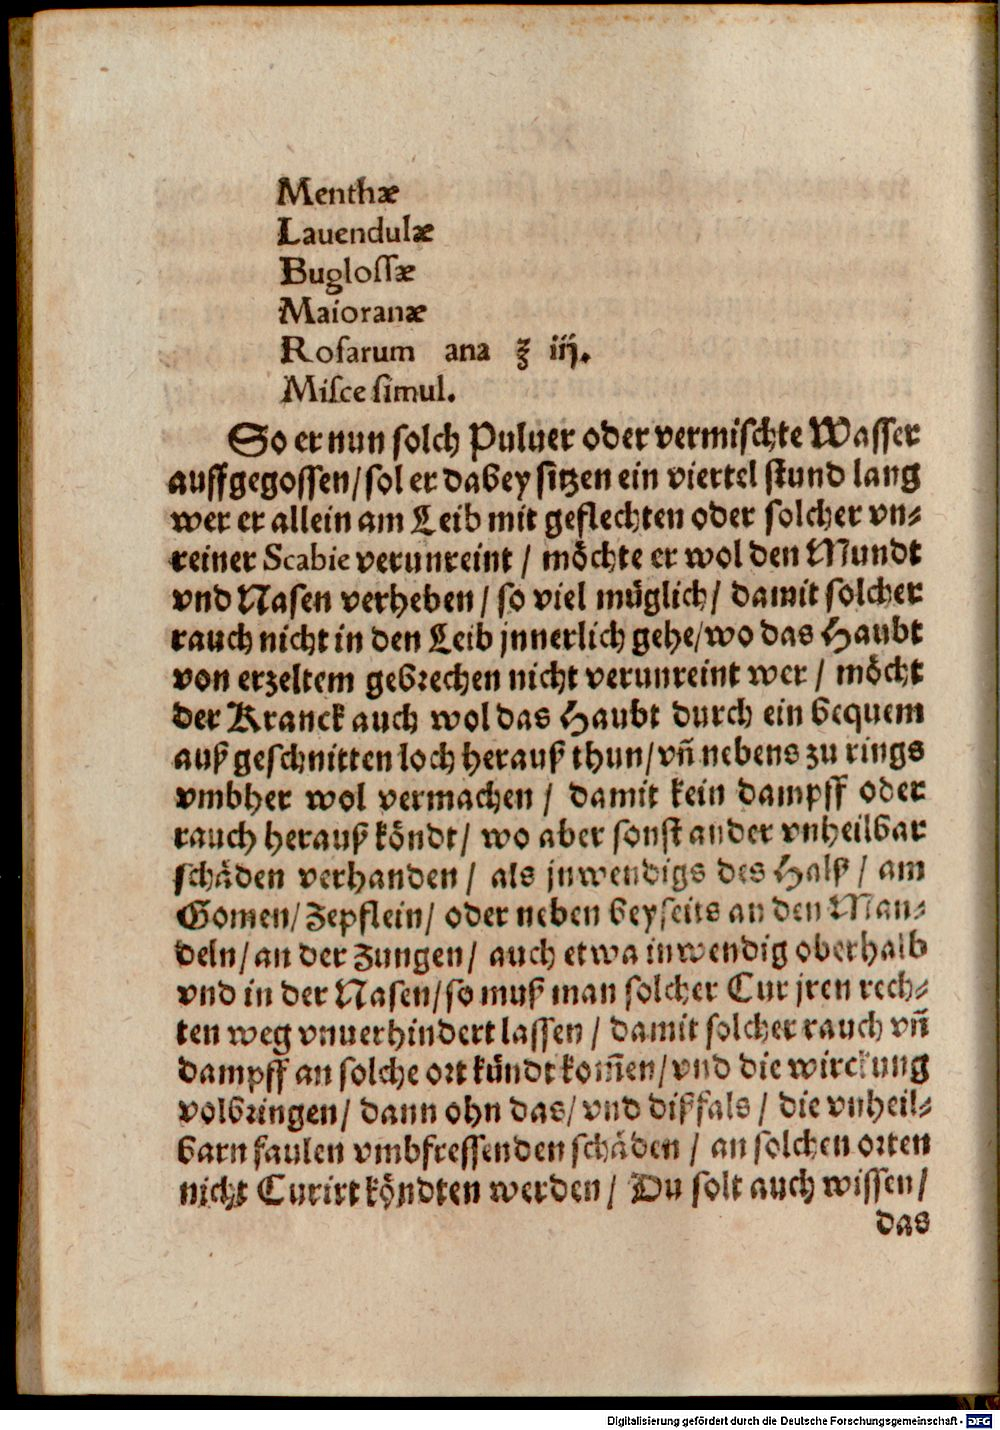 Menthæ
Lauendulæ
Bugloſſæ
Maioranæ
Roſarum ana ℥ iij.
Miſce ſimul.
So er nun ſolch Puluer oder vermiſchte Waſſer
auffgegoſſen/ſol er dabey ſitzen ein viertel ſtund lang
wer er allein am Leib mit geflechten oder ſolcher vn⸗
reiner Scabie verunreint / möchte er wol den Mundt
vnd Naſen verheben/ ſo viel müglich/ damit ſolcher
rauch nicht in den Leib jnnerlich gehe/wo das Haubt
von erzeltem gebrechen nicht verunreint wer / möcht
der Kranck auch wol das Haubt durch ein bequem
auß geſchnitten loch herauß thun/vñ nebens zu rings
vmbher wol vermachen / damit kein dampff oder
rauch herauß köndt/ wo aber ſonſt ander vnheilbar
ſchäden verhanden / als jnwendigs des Halß / am
Gomen/ Zepflein/ oder neben beyſeits an den Man⸗
deln/ an der Zungen/ auch etwa inwendig oberhalb
vnd in der Naſen/ſo muß man ſolcher Cur jren rech⸗
ten weg vnuerhindert laſſen / damit ſolcher rauch vñ
dampff an ſolche ort kündt kom̃en/vnd die wirckung
volbringen/ dann ohn das/ vnd dißfals / die vnheil⸗
barn faulen vmbfreſſenden ſchäden / an ſolchen orten
nicht Curirt köndten werden/ Du ſolt auch wiſſen/
das
Digitalisierung gefördert durch die Deutsche Forschungsgemeinschaft - DFG